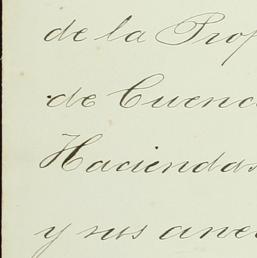 de la Prop
de Cuenc
Haciendas
y sus ane